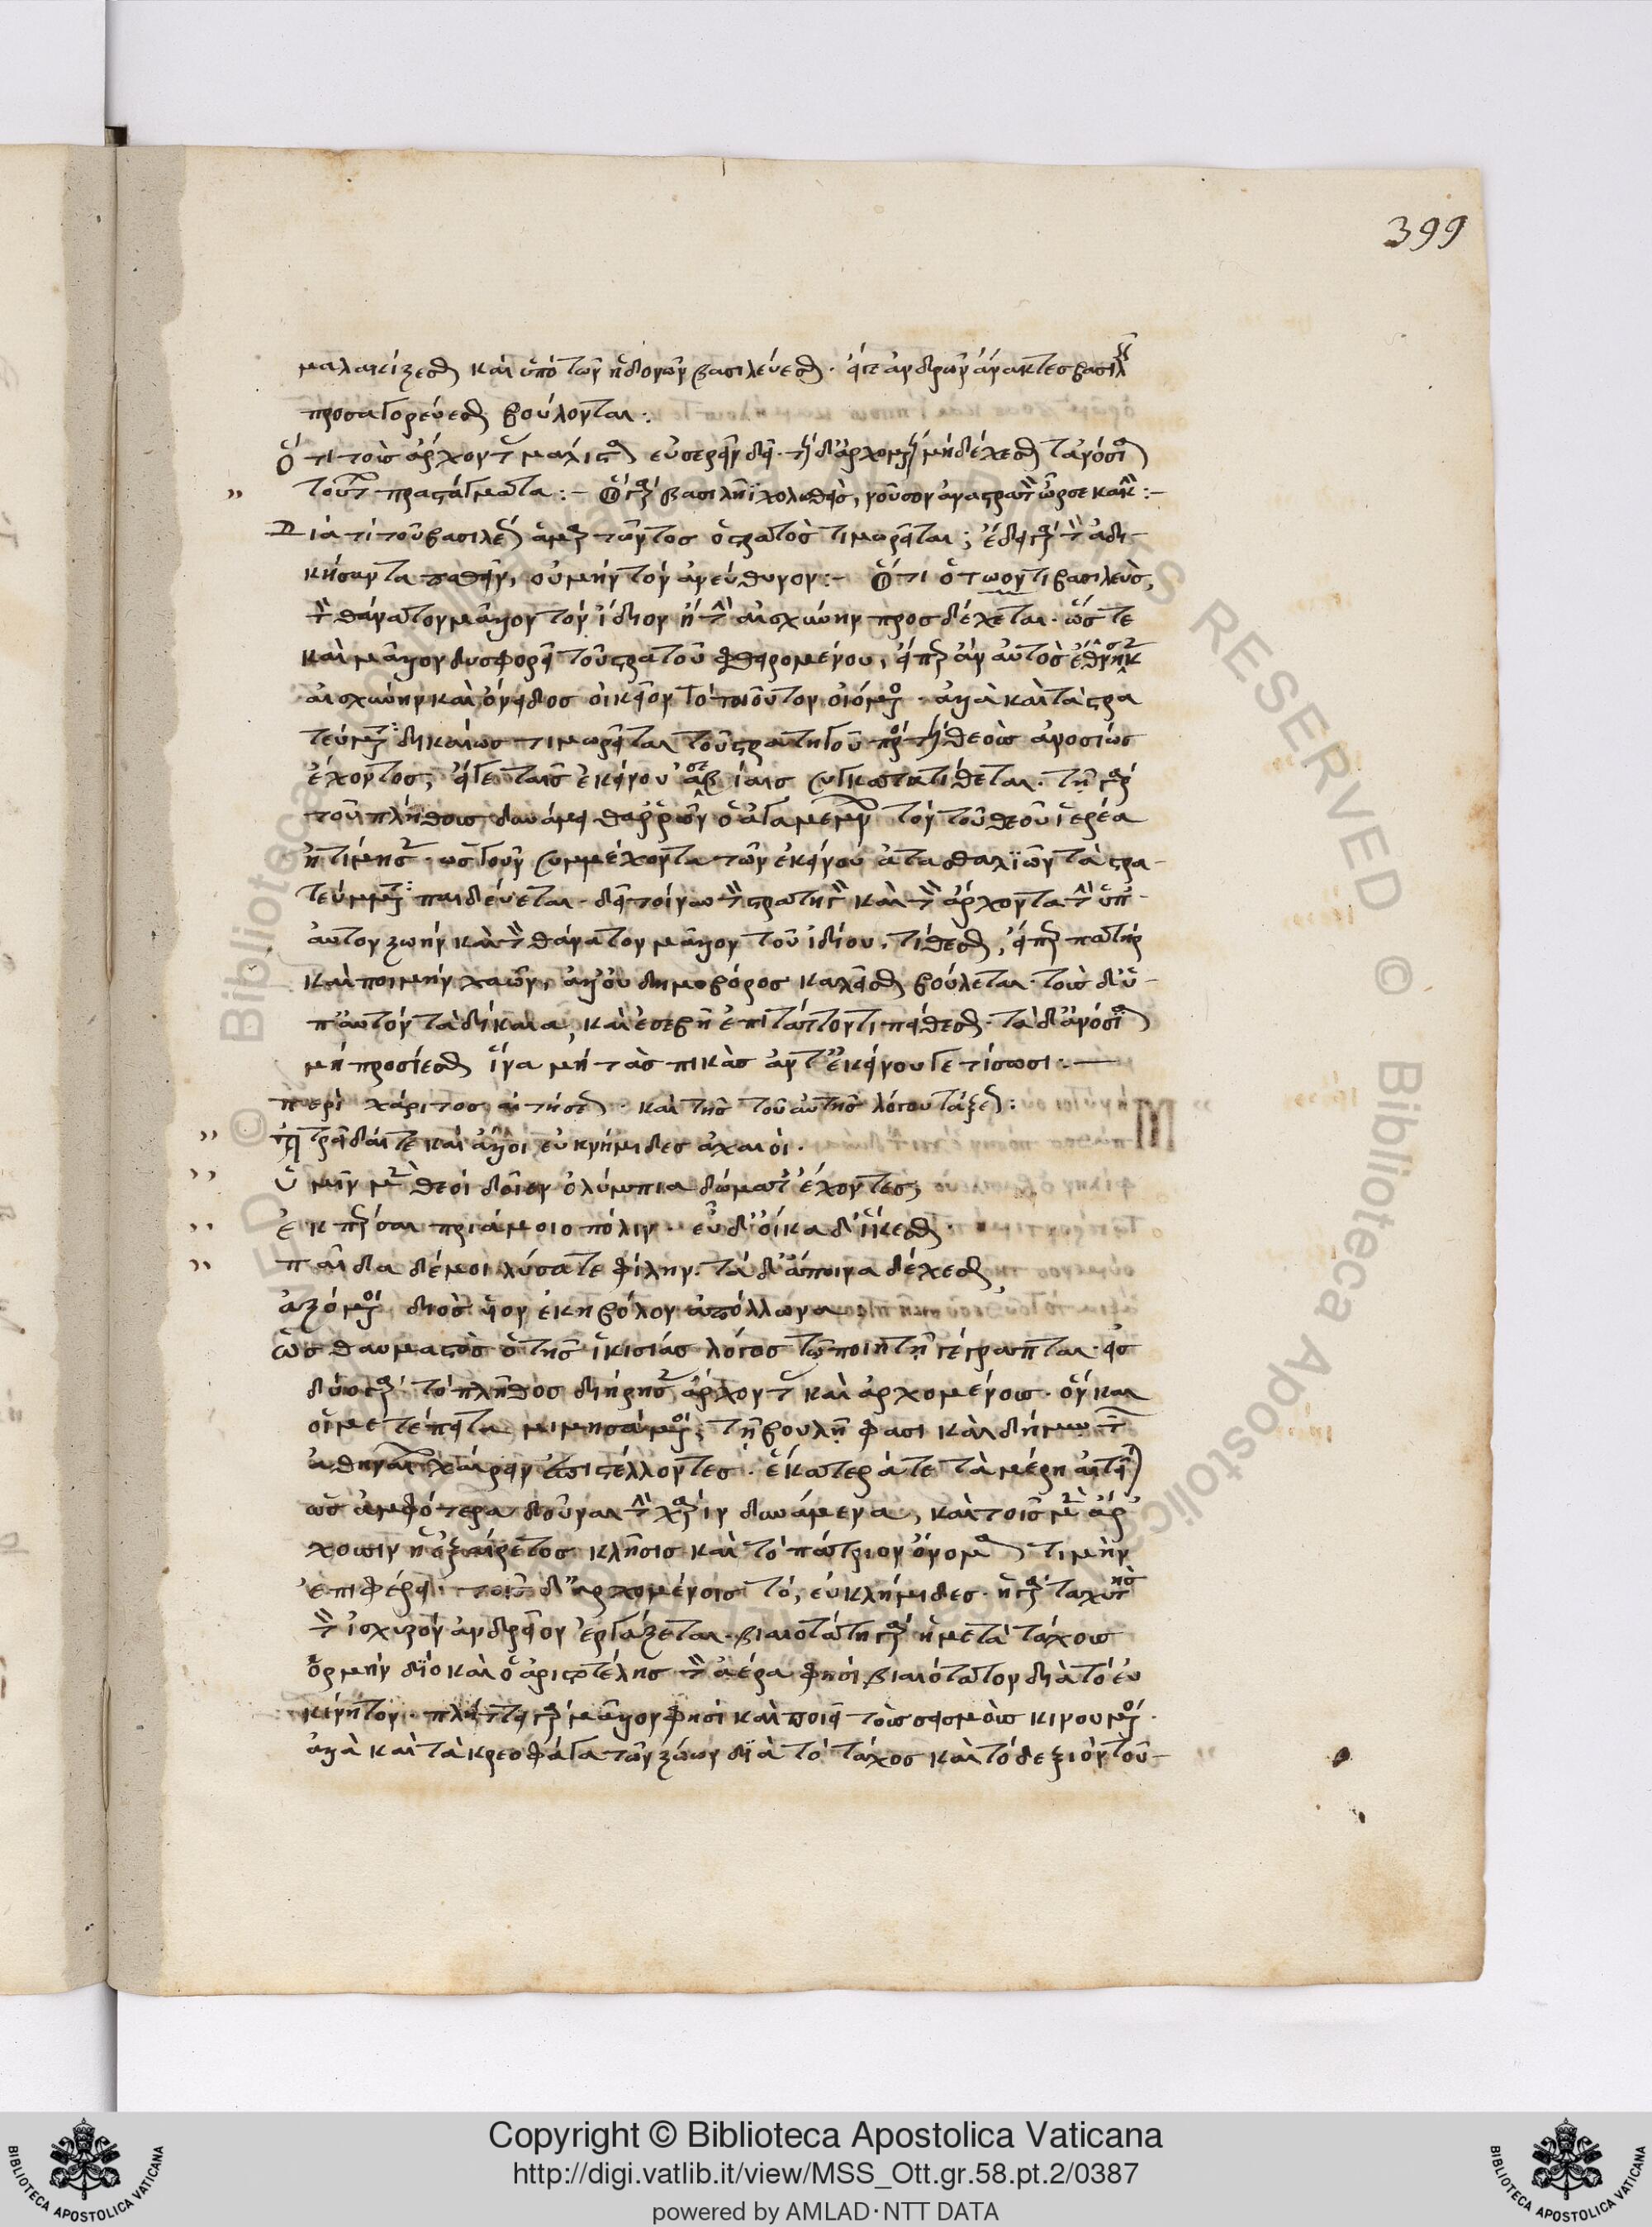 399
μαλακίζεσθαι καὶ ὑπὸ τῶν ἡδονῶν βασιλεύεσθαι· εἴπερ ἀνδρῶν ἄνακτες βασιλεῖς
προσαγορεύεσθαι βούλονται:
Ὅτι τοὺς ἄρχοντας μάλιστα εὐσεβεῖν δεῖ· τοὺς δ' ἀρχομένους μὴ δέχεσθαι τἀνόσια
τούτων προστάγματα :- Ὁ γὰρ βασιλῆϊ χολωθεὶς, νοῦσον ἀνὰ στρατὸν ὦρσε κακήν :-
Διὰ τί τοῦ βασιλέως ἁμαρτῶντος ὁ στρατὸς τιμωρεῖται; ἔδει γὰρ τὸν ἀδι-
κήσαντα παθεῖν, οὐ μὴν τὸν ἀνεύθυνον :- Ὅτι ὁ τωόντι βασιλεὺς,
τὸν θάνατον μᾶλλον τὸν ἴδιον ἢ τὴν αἰσχύνην προσδέχεται· ὥστε
καὶ μᾶλλον δυσφορεῖ τοῦ στρατοῦ φθειρομένου, εἴπερ ἂν αὐτὸς ἐθνησκεν
αἰσχύνην καὶ ὄνειδος οἰκεῖον τὸ τοιοῦτον οἰόμενος· ἀλλὰ καὶ τὰ στρα
τεύματα δικαίως τιμωρεῖται τοῦ στρατηγοῦ πρὸς τοὺς θεοὺς ἀνοσίως
ἔχοντος, εἴγε ταῖς ἐκείνου ἀσεβείαις συγκατατίθεται· τῇ γὰρ
τοῦ πλήθους δυνάμει θαρρῶν ὁ ἀγαμέμνων τὸν τοῦ θεοῦ ἱερέα
ἠτίμησεν· ὡς γοῦν συμμέχοντα τῶν ἐκείνου ἀτασθαλιῶν τὰ στρα-
τεύματα παιδεύεται· δεῖ τοίνυν τὸν στρατηγὸν καὶ τὸν ἄρχοντα τὴν ὑπ'
αὐτὸν ζωὴν καὶ τὸν θάνατον μᾶλλον τοῦ ἰδίου, τίθεσθαι, εἴπερ πατὴρ
καὶ ποιμὴν λαῶν, ἀλλ' οὐ δημοβόρος καλεῖσθαι βούλεται· τοὺς δ' ὑ-
π' αὐτὸν τὰ δίκαια, καὶ εὐσεβῆ ἐπιτάττοντι πείθεσθαι· τὰ δ' ἀνόσια
μὴ προσίεσθαι ἵνα μὴ τὰς πικὰς ἀντ' ἐκείνου γε τίσωσι :-
περὶ χάριτος αἰτήσεως· καὶ τῆς τοῦ αὐτῆς λόγου τάξεως:
ἀτρεῖδαί τε καὶ ἄλλοι εὐκνήμιδες ἀχαιοί.
ὑμῖν μὲν θεοὶ δοῖεν ὀλύμπια δώματ' ἔχοντες,
ἐκπέρσαι πριάμοιο πόλιν· εὖ δ' οἴκαδ' ἱκέσθαι·
παῖδα δέ μοι λύσατε φίλην· τὰ δ' ἄποινα δέχεσθαι
ἁζόμενοι διὸς υἱὸν ἑκηβόλον ἀπόλλωνα
ὡς θαυμαστὸς ὁ τῆς ἱκεσίας λόγος τῷ ποιητῇ γέγραπται· εἰς
δύο γὰρ τὸ πλῆθος διήρησεν ἄρχοντας καὶ ἀρχομένους· ὃν καὶ
οἱ μετέπειτα μιμησάμενοι, τῇ βουλῇ φασι καὶ δήμῳ τῶν
ἀθηναίων χαίρειν ἐπιστέλλοντες· ἑκάτερά τε τὰ μέρη αἰτεῖται
ὡς ἀμφότερα δοῦναι τὴν χάριν δυνάμενα, καὶ τοῖς μὲν ἄρ-
χουσιν ἡ ἐξαίρετος κλῆσις καὶ τὸ πάτριον ὄνομα τιμὴν
ἐπιφέρει· τοῖς δ' ἀρχομένοις τό, εὐκλήμιδες· ἡ γὰρ ταχυτὴς
τὸν ἰσχυρὸν ἀνδρεῖον ἐργάζεται· βιαιοτάτη γὰρ ἡ μετὰ τάχους
ὁρμήν διὸ καὶ ὁ ἀριστοτέλης τὸν ἀέρα φησὶ βιαιότατον διὰ τὸ εὐ
κίνητον· πλήττει γὰρ μᾶλλον φησὶ καὶ ποιεῖ τοὺς σεισμοὺς κινούμενος·
ἀλλὰ καὶ τὰ κρεοφάγα τῶν ζώων διὰ τὸ τάχος καὶ τὸ δεξιὸν τοῦ-
Copyright © Biblioteca Apostolica Vaticana
http://digi.vatlib.it/view/MSS_Ott.gr.58.pt.2/0387
powered by AMLAD·NTT DATA